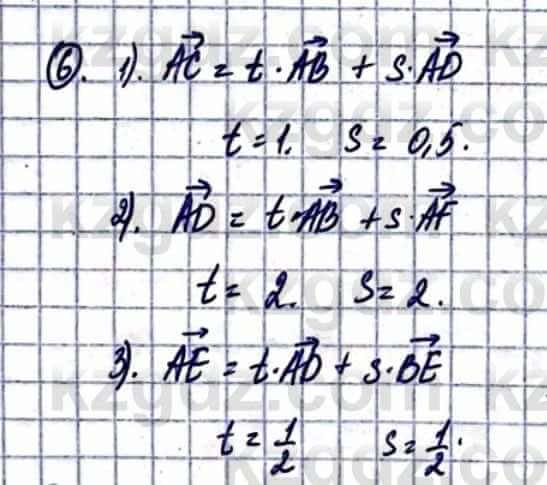 6. 1). AC⃗ = t · AB⃗ + s · AD⃗
t = 1. s = 0,5.
2). AD⃗ = t · AB⃗ + s · AF⃗
t = 2. s = 2.
3). AE⃗ = t · AD⃗ + s · BE⃗
t = 1/2 s = 1/2.